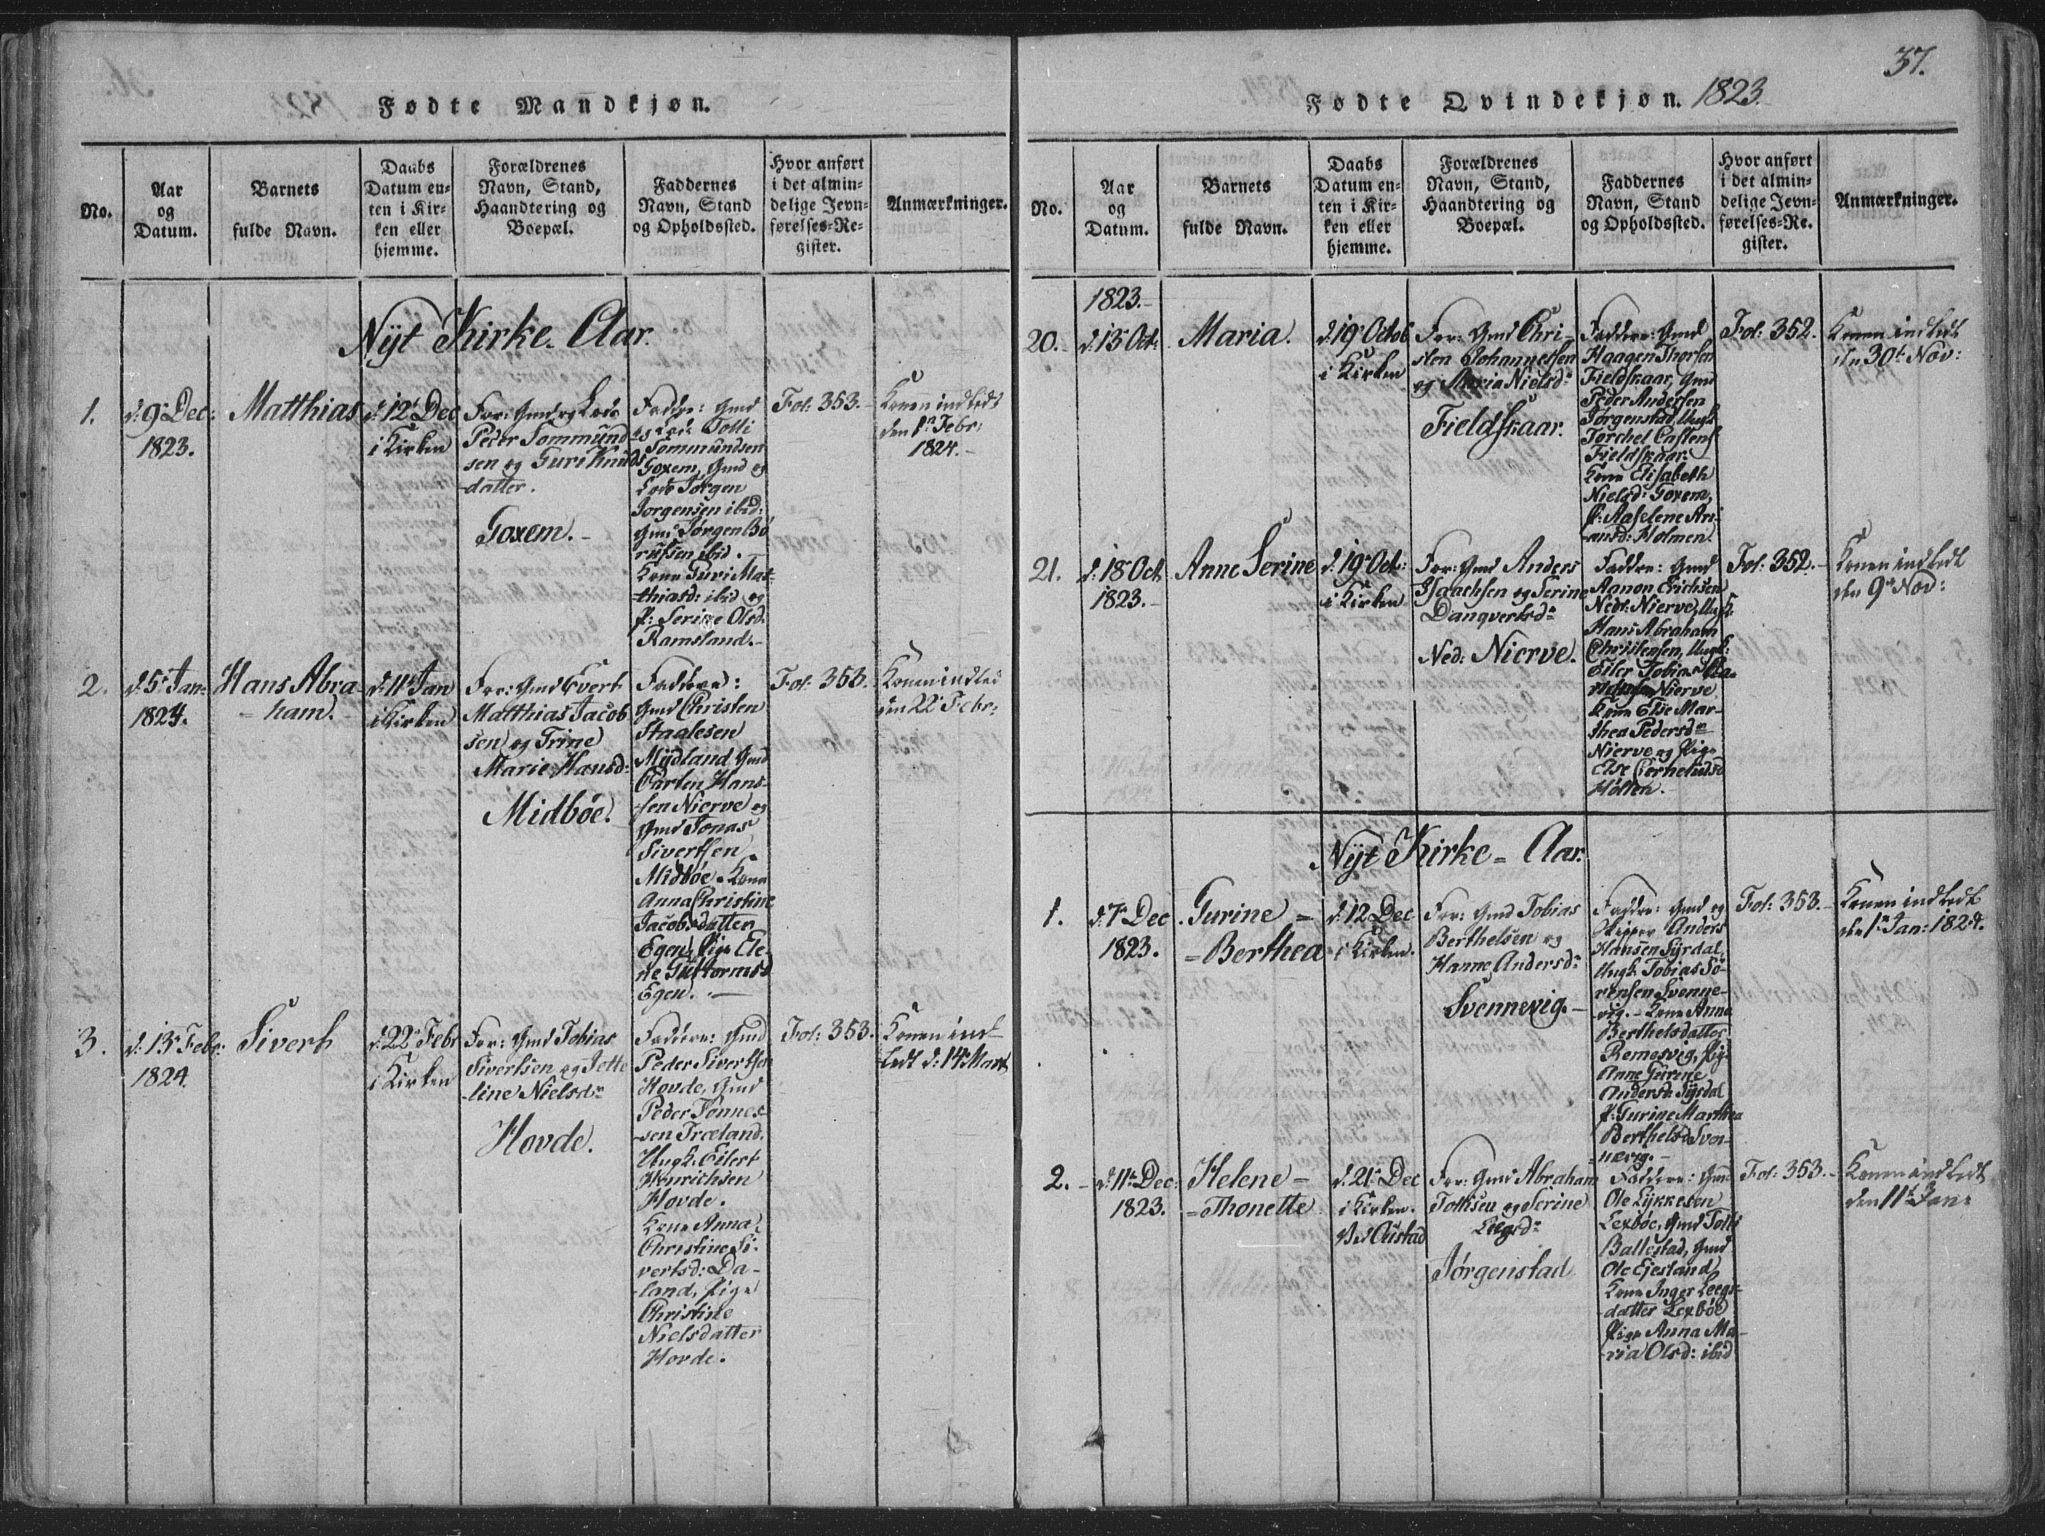 Fødte Mandkjøn.
No.
Aar
og
Datum.
Barnets
fulde Navn.
Daabs
Datum en-
ten i Kir-
ken eller
hjemme.
Forældrenes
Navn, Stand,
Haandtering og
Boepæl.
Faddernes
Navn, Stand
og Opholdssted.
Hvor anført
i det almin-
delige Jevn-
førelses-Re-
gister.
Anmærkninger.
Nyt Kirke-Aar.
1.
d: 9de Dec:
1823.
Matthias
d: 12te Dec
i Kirken
For: Gmd og Lods
Peder Tommund
sen og Guri Knuds
datter.
Goxem.
Faddre: Gmd
og Lods Tolli
Tommundsen
Goxem, Gmd og
Lods Jørgen
Jørgensen ibid:
Gmd Jørgen Bø
ruffen ibid.
Kone Guri Mat-
thiasd: ibid og
P: Serine Olsd.
Ramsland.
Fol: 353.
Konen indledt
den 1te Febr:
1824.
2.
d: 5te Jan:
1824.
Hans Abra
ham.
d: 11te Jan
i Kirken
For: Gmd Evert
Matthias Jacob
sen og Trine
Marie Hansd:
Midbøe.
Faddere:
Gmd Christen
Staalesen
Mydland, Gmd
Carlen Hans-
sen Nierve og
Gmd Jonas
Sivertsen
Midbøe. Kone
Anna Christine
Jacobsdatter
Egen, Pige Ele-
ne Guttormsd
Egen.
Fol: 353.
Konen indled
den 22de Febr:
3.
d: 13de Febr:
1824.
Sivert
d: 22de Febr
i Kirken
For: Gmd Tobias
Sivertsen og Jette
line Nielsdr
Hovde.
Faddere: Gmd
Peder Sivertsen
Hovde, Gmd
Peder Tønnes-
sen Træland.
Ungk. Eilert
Henrichsen
Hovde.
Kone Anna
Christine Si-
vertsd: Da-
land, Pige
Christine
Nielsdatter
Hovde.
Fol: 353.
Konen ind-
ledt d: 14de Mart
37.
Fødte Qvindekjøn. 1823.
No.
Aar
og
Datum.
Barnets
fulde Navn.
Daabs
Datum en-
ten i Kir-
ken eller
hjemme.
Forældrenes
Navn, Stand,
Haandtering og
Boepæl.
Faddernes
Navn, Stand
og Opholdssted.
Hvor anført
i det almin-
delige Jevn-
førelses-Re-
gister.
Anmærkninger.
1823.
20.
d: 13 Oct:
Maria.
d: 19de Octob
i Kirken
For: Gmd Chri-
sten Johannessen
og Maria Nielsdr
Fieldskaar.
Faddere: Gmd
Haagen Thorsen
Fieldskaar, Gmd
Peder Andersen
Jørgenstad, Ungk
Torchel Castens
Fieldskaar.
Kone Elisabeth
Nielsd: Goxem,
P: Aaselene Ari-
ansd: Holmen.
Fol: 352.
Konen indledt
den 30te Nov:
21.
d: 18de Oct
1823.
Anne Serine
d: 19de Oct:
i Kirken
For: Gmd Anders
Isaachsen og Serine
Danqvertsdr
Ned: Nierve.
Faddre: Gmd
Aanon Erichsen
Nedr: Nierve, Ungk:
Hans Abraham
Christensen, Ungk:
Eiler Tobias
Nierve
Kone Else Mar-
thea Pedersdr
Nierve og Pige
Else Corneliusd
Holten.
Fol: 352.
Konen indledt
den 9de Nov:
Nyt Kirke-Aar.
1.
d: 7de Dec
1823.
Gurine
Berthea
d: 12 Dec
i Kirken.
For: Gmd Tobias
Berthelsen og
Hanne Andersdr
Svennevig.
Faddre: Gmd og
Skipper Anders
Hansen Syrdal,
Ungk: Tobias Sø-
rensen Svenne-
vig. Kone Anna
Berthelsdatter
Remesvig, Pige
Anne Gurine
Andersd: Syrdal
P: Gurine Marthea
Berthelsd Sven-
nevig.
Fol: 353.
Konen indledt
den 1te Jan: 1824.
2.
d: 11te Dec:
1823.
Helene
Thonette
d. 21de Dec
i Kirken.
For: Gmd Abraham
Tollisen og Serine
Leegsdr
Jørgenstad
Faddere: Gmd
Ole Lykkesen
Lexbøe, Gmd Tolli
Ballestad, Gmd
Ole Ejesland
Kone Inger Leegs-
datter Lexbøe
Pige Anna Ma-
ria Olsd: ibid
Fol: 353.
Konen indledt
den 11te Jan: